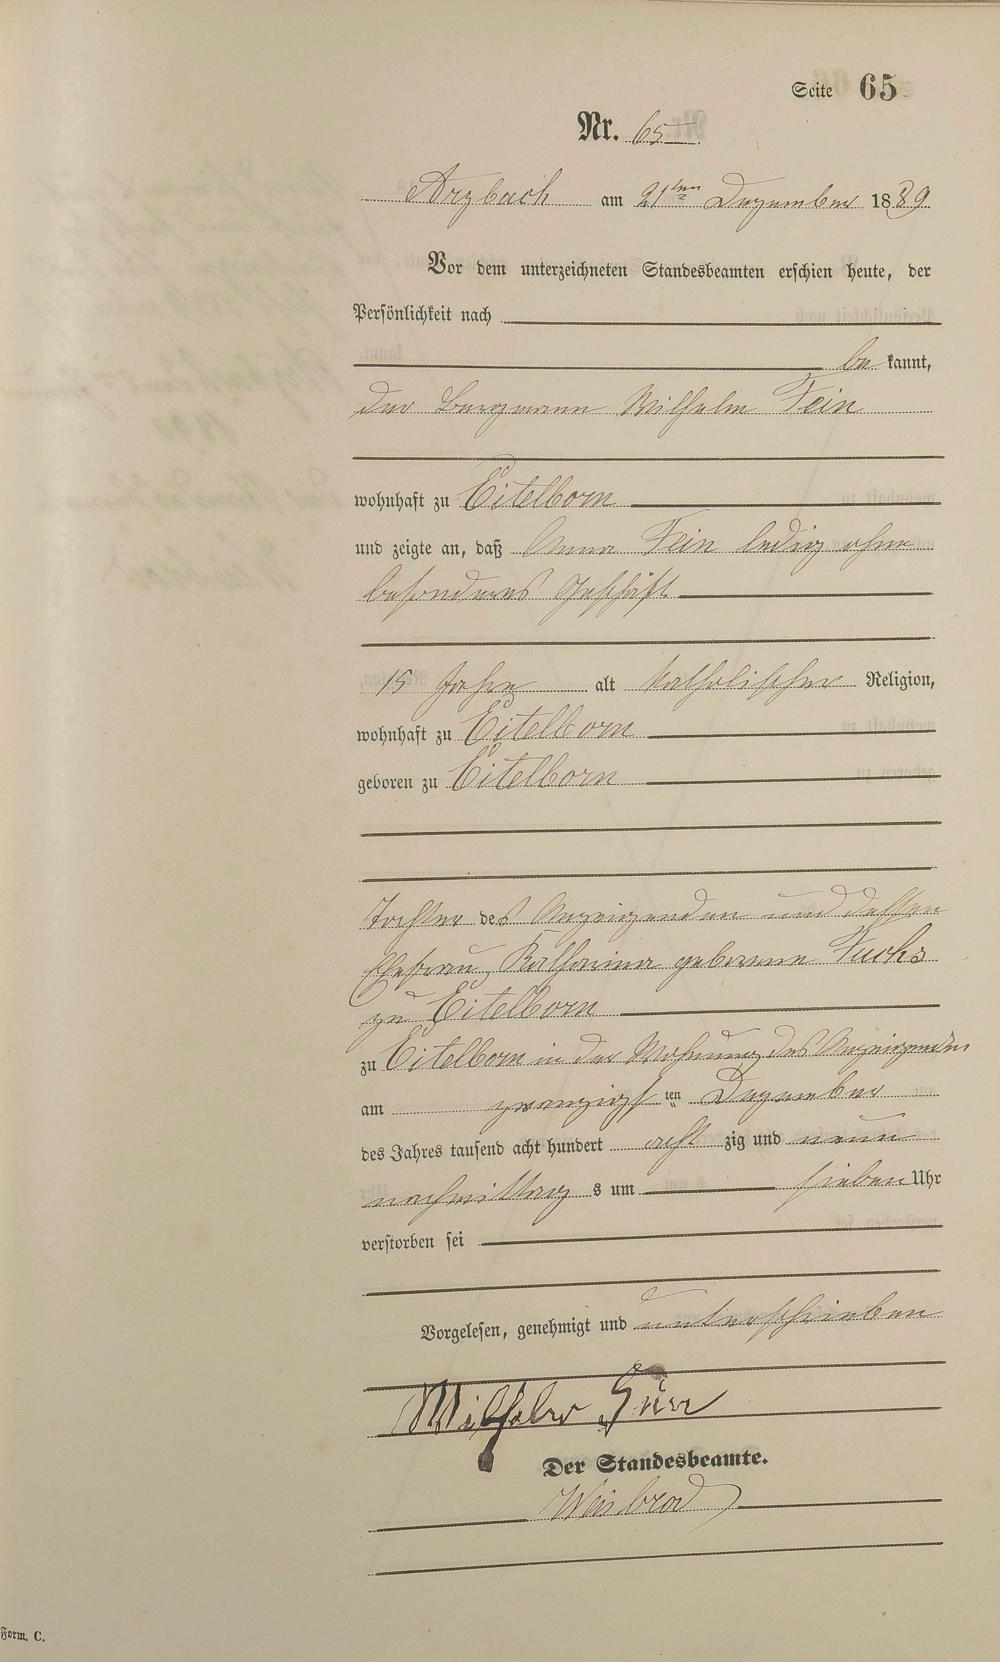 Seite 65
Nr. 65
Arzbach am 21ten Dezember 1889
Vor dem unterzeichneten Standesbeamten erschien heute, der
Persönlichkeit nach
be kannt,
der Bergmann Wilhelm Fein
wohnhaft zu Eitelborn
und zeigte an, daß Anna Fein ledig ohne
besonderes Geschäft
15 Jahre alt katholischer Religion,
wohnhaft zu Eitelborn
geboren zu Eitelborn
Tochter des Anzeigenden und dessen
Ehefrau, Katharina geborene Fuchs
zu Eitelborn
zu Eitelborn in der Wohnung des Anzeigenden
am zwanzigsten Dezember
des Jahres tausend acht hundert acht zig und neun
nachmittag s um sieben Uhr
verstorben sei
Vorgelesen, genehmigt und unterschrieben
Wilhelm
Der Standesbeamte.
Weisbrod
Form. C.